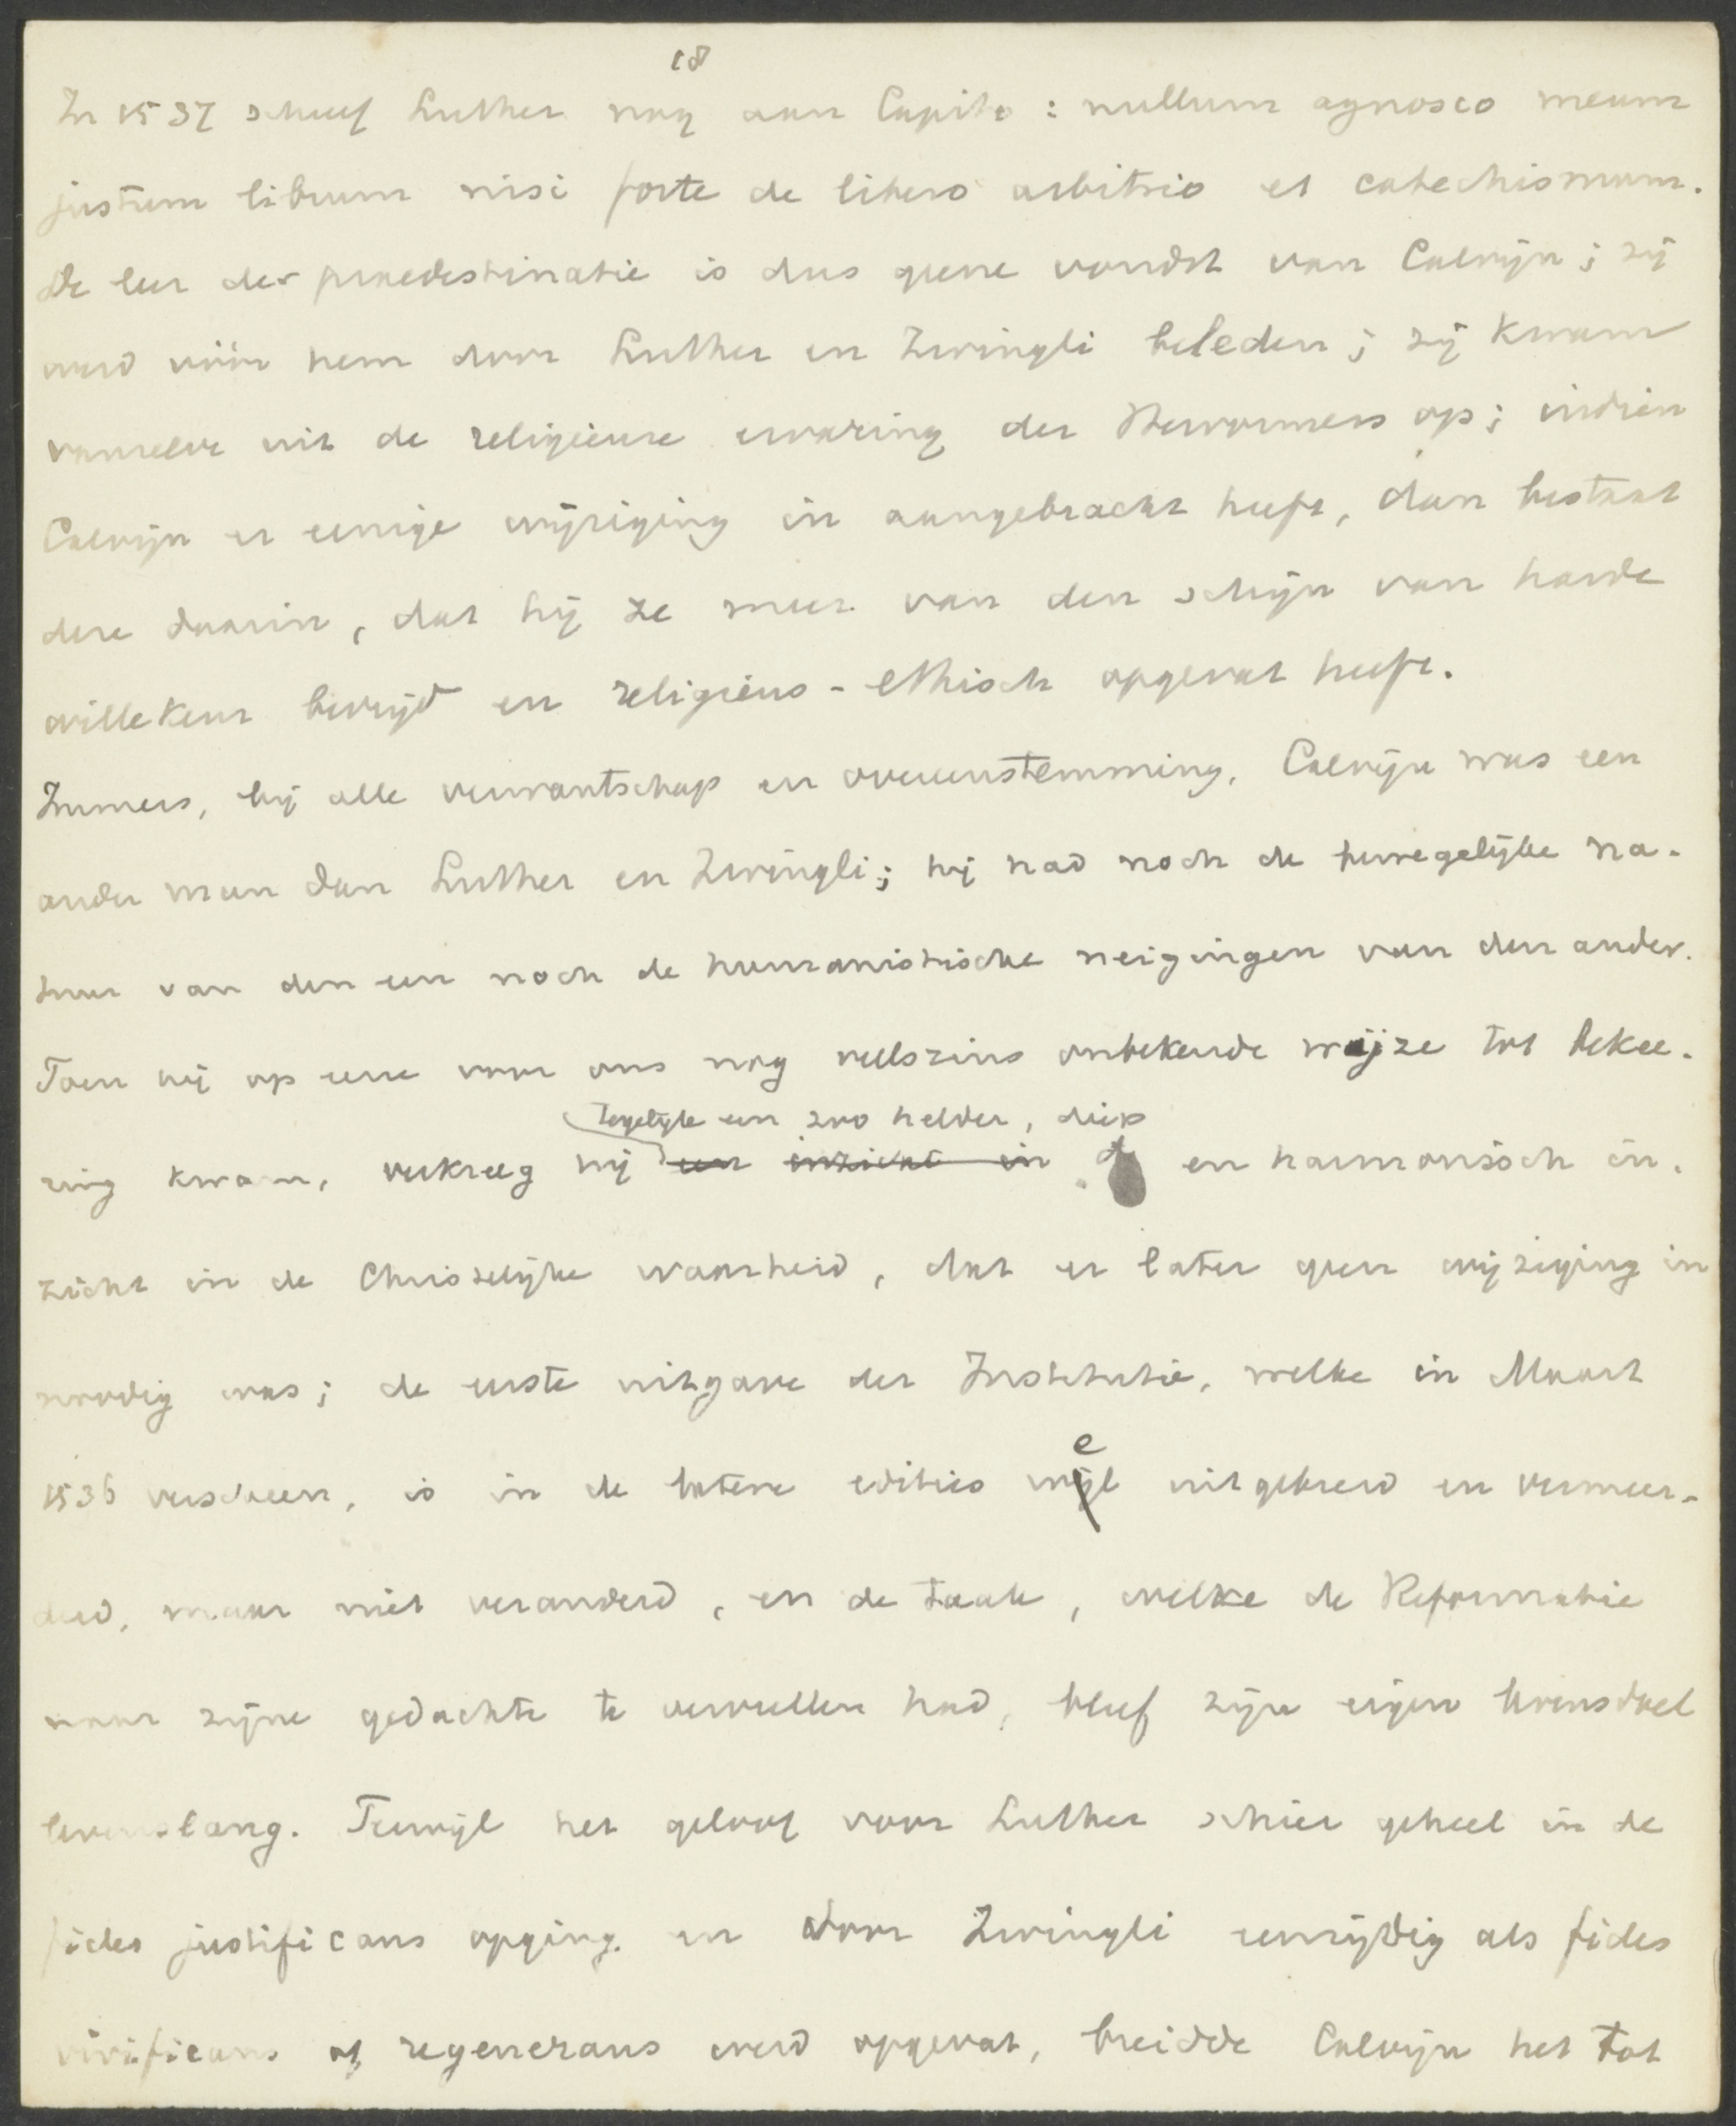 18
In 1537 schreef Luther nog aan Capito : nullum agnosco meum
justum librum nisi forte de libero arbitrio et catechismum.
De leer der praedestinatie is dus geene vondst van Calvijn ; zij
werd vóór hem door Luther en Zwingli beleden ; zij kwam
vanzelve uit de religieuze ervaring der Hervormers op ; indien
Calvijn er eenige wijziging in aangebracht heeft, dan bestaat
deze daarin, dat hij ze meer van den schijn van harde
willekeur bevrijd en religieus-ethisch opgevat heeft.
Immers, bij alle verwantschap en overeenstemming, Calvijn was een
ander man dan Luther en Zwingli ; hij had noch de bewegelijke na-
tuur van den een noch de humanistische neigingen van den ander.
Toen hij op eene voor ons nog veelszins onbekende wijze tot bekee-
tegelijk een zoo helder, diep
ring kwam, verkreeg hij een inzicht in d en harmonisch in-
zicht in de Christelijke waarheid, dat er later geen wijziging in
noodig was ; de eerste uitgave der Institutie, welke in Maart
1536 verscheen, is in de latere edities wel uitgebreid en vermeer-
derd, maar niet veranderd, en de taak, welke de Reformatie
naar zijne gedachte te vervullen had, bleef zijn eigen levensdoel
levenslang. Terwijl het geloof voor Luther schier geheel in de
fides justificans opging en door Zwingli eenzijdig als fides
vivificans of regenerans werd opgevat, breidde Calvijn het tot